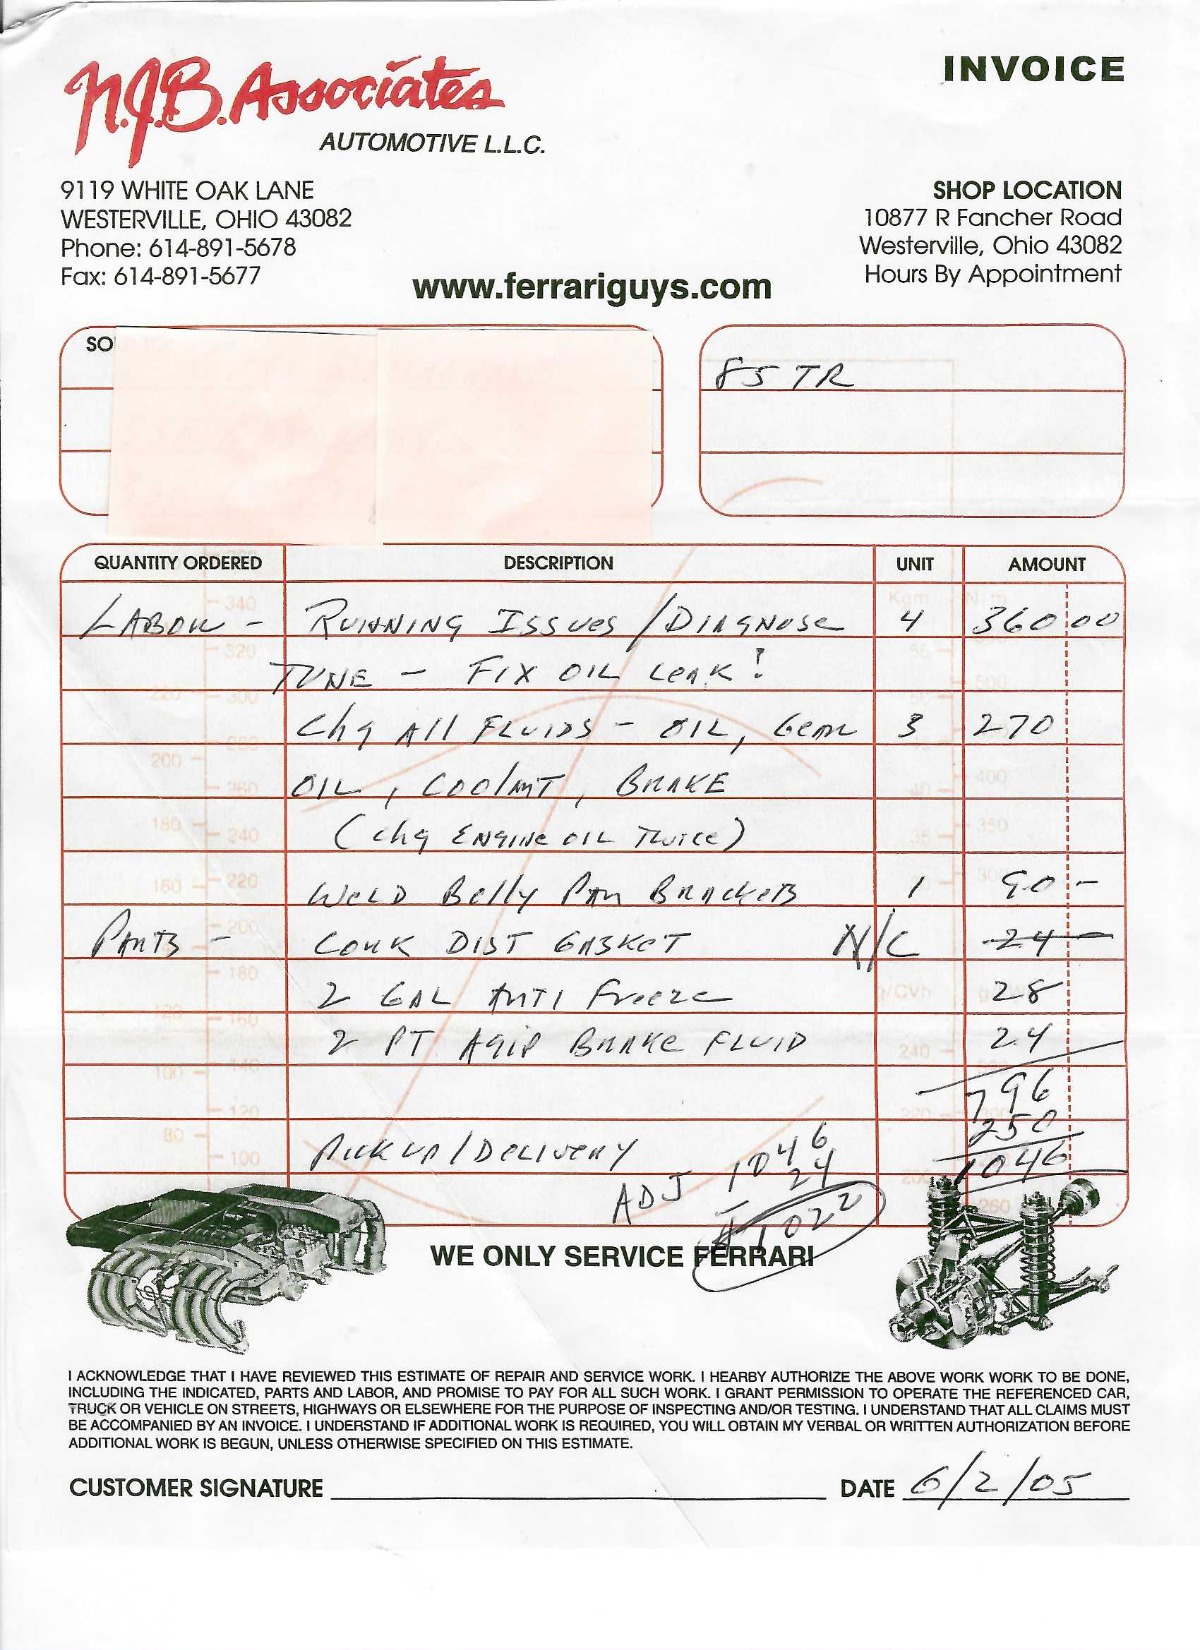 N.J.B. Associates
AUTOMOTIVE L.L.C.
INVOICE
9119 WHITE OAK LANE
WESTERVILLE, OHIO 43082
Phone: 614-891-5678
Fax: 614-891-5677
www.ferrariguys.com
SHOP LOCATION
10877 R Fancher Road
Westerville, Ohio 43082
Hours By Appointment
SO
85 TR
QUANTITY ORDERED DESCRIPTION UNIT AMOUNT
LABOR - RUNNING ISSUES / DIAGNOSE 4 360 00
TUNE - FIX OIL LEAK!
Chg All FLUIDS - OIL, GEAR 3 270
OIL, COOLANT, BRAKE
(chg ENGINE OIL TWICE)
WELD Belly PAN BRACKETS 1 90 -
PARTS - CORK DIST GASKET N/C 24
2 GAL ANTI Freeze 28
2 PT Agip BRAKE FLUID 24
796
PICKUP/DELIVERY 250
1046 1046
ADJ - 24
$1022
WE ONLY SERVICE FERRARI
I ACKNOWLEDGE THAT I HAVE REVIEWED THIS ESTIMATE OF REPAIR AND SERVICE WORK. I HEARBY AUTHORIZE THE ABOVE WORK WORK TO BE DONE,
INCLUDING THE INDICATED, PARTS AND LABOR, AND PROMISE TO PAY FOR ALL SUCH WORK. I GRANT PERMISSION TO OPERATE THE REFERENCED CAR,
TRUCK OR VEHICLE ON STREETS, HIGHWAYS OR ELSEWHERE FOR THE PURPOSE OF INSPECTING AND/OR TESTING. I UNDERSTAND THAT ALL CLAIMS MUST
BE ACCOMPANIED BY AN INVOICE. I UNDERSTAND IF ADDITIONAL WORK IS REQUIRED, YOU WILL OBTAIN MY VERBAL OR WRITTEN AUTHORIZATION BEFORE
ADDITIONAL WORK IS BEGUN, UNLESS OTHERWISE SPECIFIED ON THIS ESTIMATE.
CUSTOMER SIGNATURE DATE 6/2/05